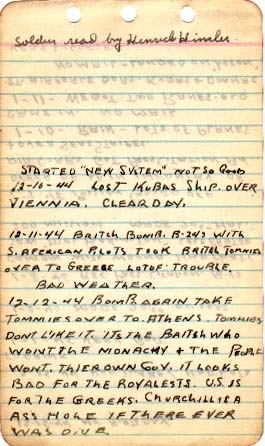 Soldier read by Heinrich Himler.
STARTED "NEW SYSTEM" NOT SO GOOD
12-10-44 LOST KUBAS SHIP. OVER
VIENNIA. CLEAR DAY.
12-11-44 BRITCH BOMB. B-24s WITH
S. AFFERICAN PILOTS TOOK BRITCH TOMMIES
OVER TO GREECE LOT OF TROUBLE.
BAD WEATHER.
12-12-44 BOMB AGAIN TAKE
TOMMIES OVER TO ATHENS. TOMMIES
DONT LIKE IT. ITS THE BRITSH WHO
WONT THE MONACHY & THE PEOPLE
WONT. THIER OWN GOV. IT LOOKS
BAD FOR THE ROYALESTS. U.S. IS
FOR THE GREEKS. CHURCHILL IS A
ASS HOLE IF THERE EVER
WAS ONE